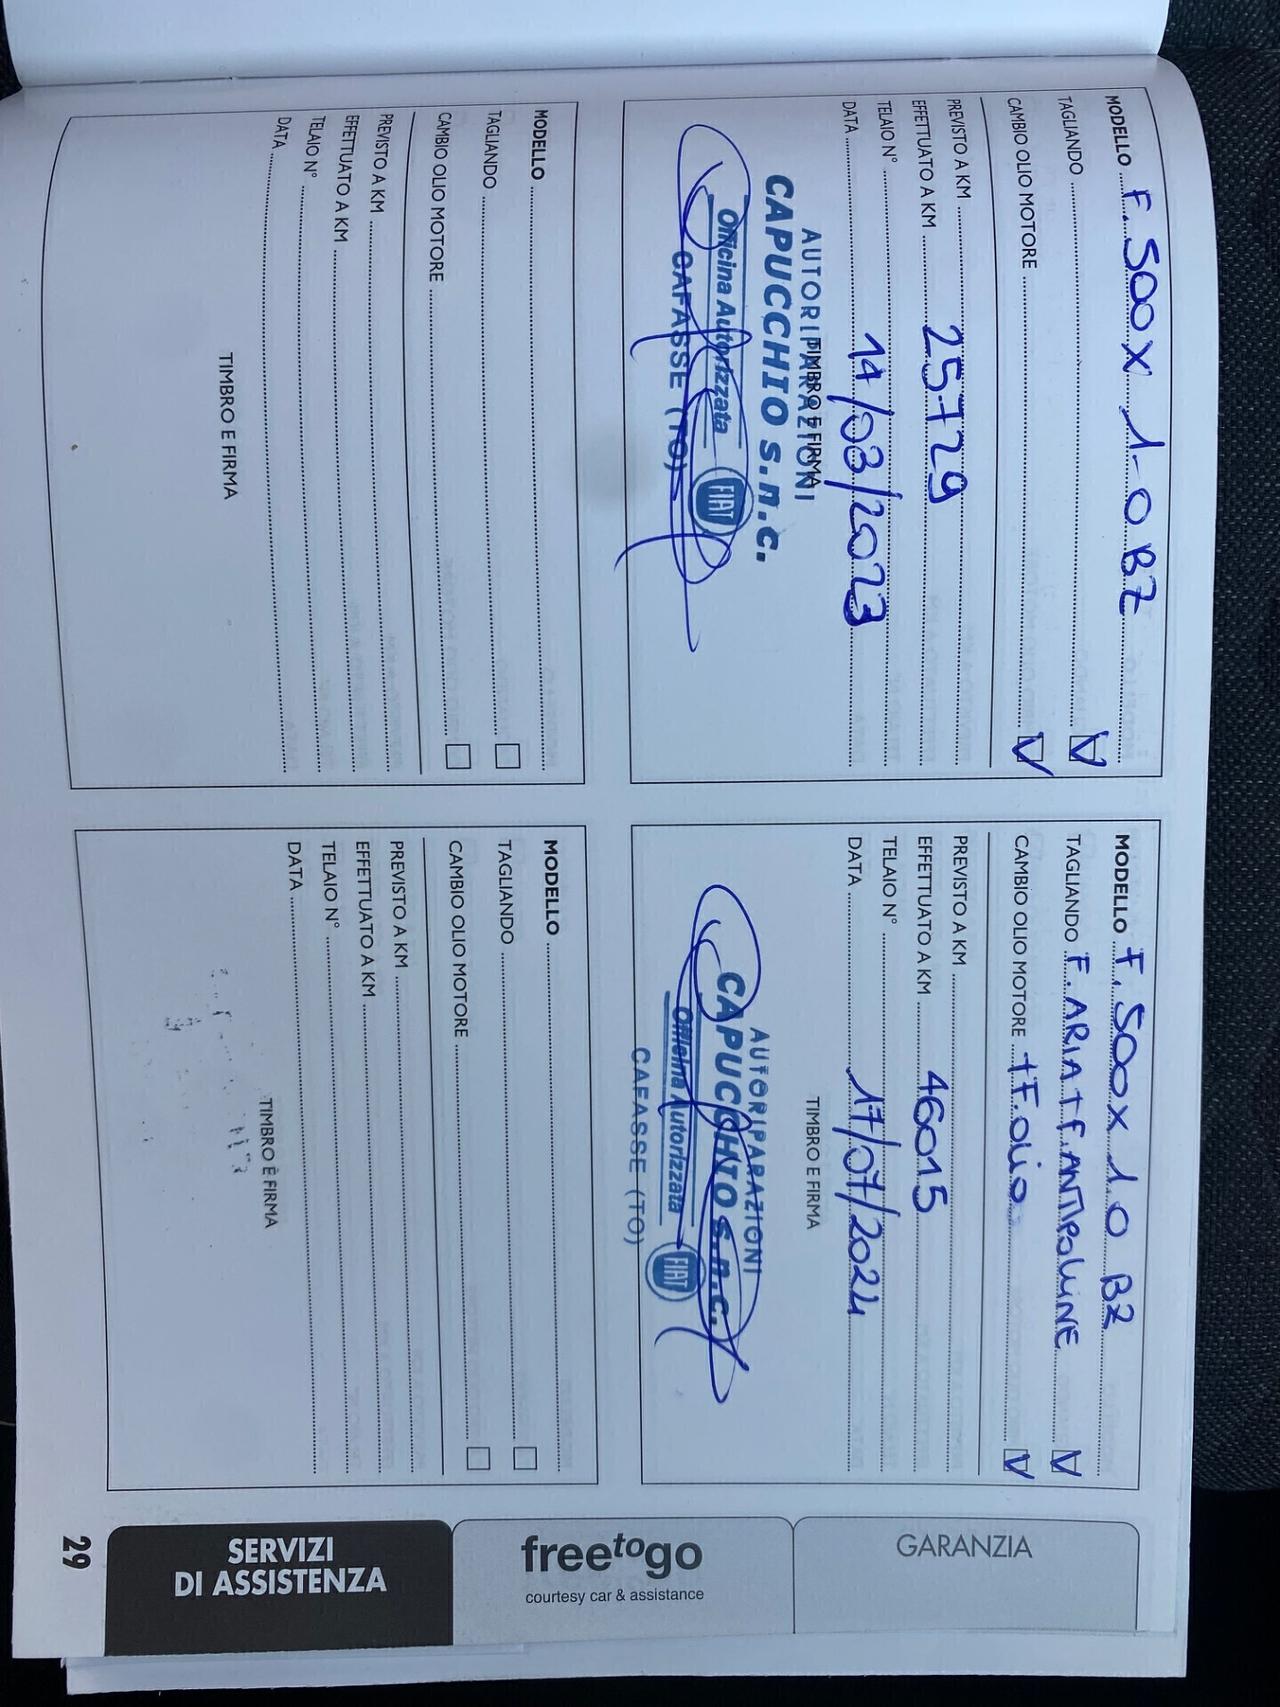 MODELLO F. 500X 1.0 BZ
TAGLIANDO V
CAMBIO OLIO MOTORE V
PREVISTO A KM
EFFETTUATO A KM 25729
TELAIO N°
DATA 14/03/2023
TIMBRO E FIRMA
AUTORIPARAZIONI
CAPUCCHIO s.n.c.
Officina Autorizzata
FIAT
CAFASSE (TO)
MODELLO F. 500X 1.0 BZ
TAGLIANDO F. ARIA + F. ANTIPOLLINE V
CAMBIO OLIO MOTORE + F. OLIO V
PREVISTO A KM
EFFETTUATO A KM 46015
TELAIO N°
DATA 17/07/2024
TIMBRO E FIRMA
AUTORIPARAZIONI
CAPUCCHIO s.n.c.
Officina Autorizzata
FIAT
CAFASSE (TO)
MODELLO
TAGLIANDO
CAMBIO OLIO MOTORE
PREVISTO A KM
EFFETTUATO A KM
TELAIO N°
DATA
TIMBRO E FIRMA
MODELLO
TAGLIANDO
CAMBIO OLIO MOTORE
PREVISTO A KM
EFFETTUATO A KM
TELAIO N°
DATA
TIMBRO E FIRMA
GARANZIA
freetogo
courtesy car & assistance
SERVIZI
DI ASSISTENZA
29